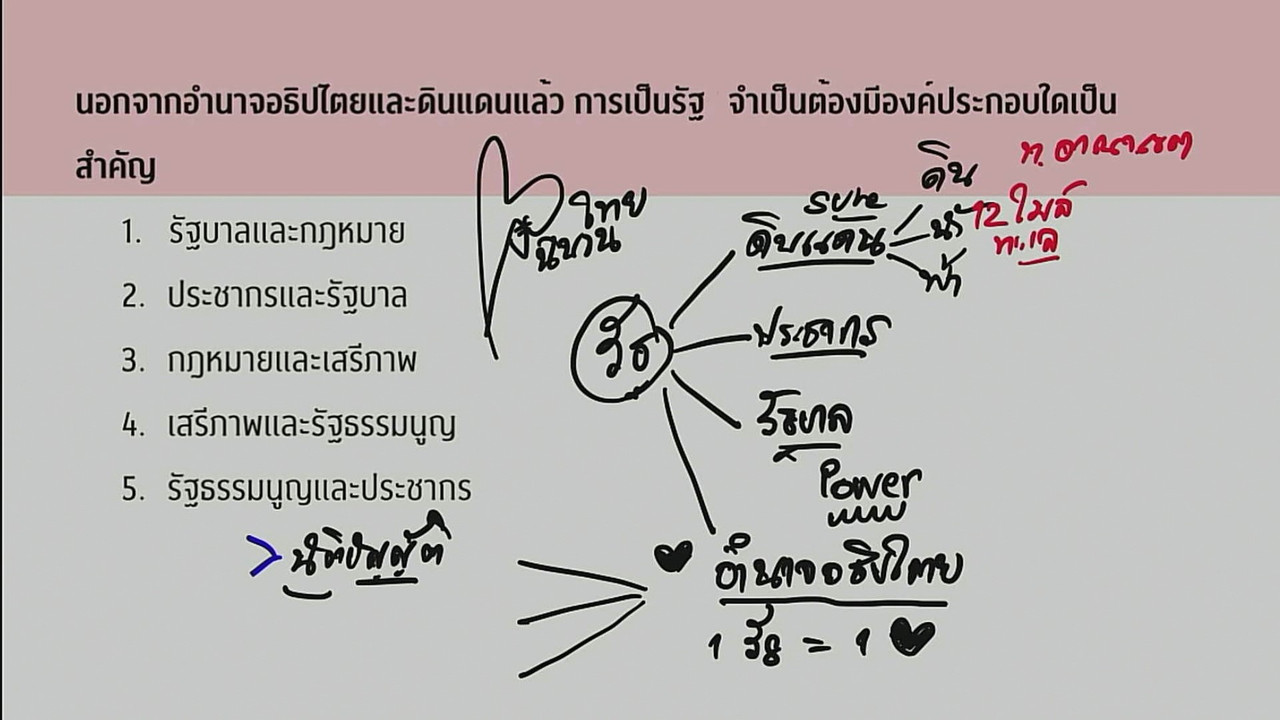 นอกจากอำนาจอธิปไตยและดินแดนแล้ว การเป็นรัฐ จำเป็นต้องมีองค์ประกอบใดเป็น
สำคัญ
1. รัฐบาลและกฎหมาย
2. ประชากรและรัฐบาล
3. กฎหมายและเสรีภาพ
4. เสรีภาพและรัฐธรรมนูญ
5. รัฐธรรมนูญและประชากร
นิติบัญญัติ
ไทย
รัฐ
sure
ดินแดน
ดิน
น้ำ
ฟ้า
ท. อาณาเขต
12 ไมล์
ทะเล
ประชากร
รัฐบาล
Power
อำนาจอธิปไตย
1 รัฐ = 1